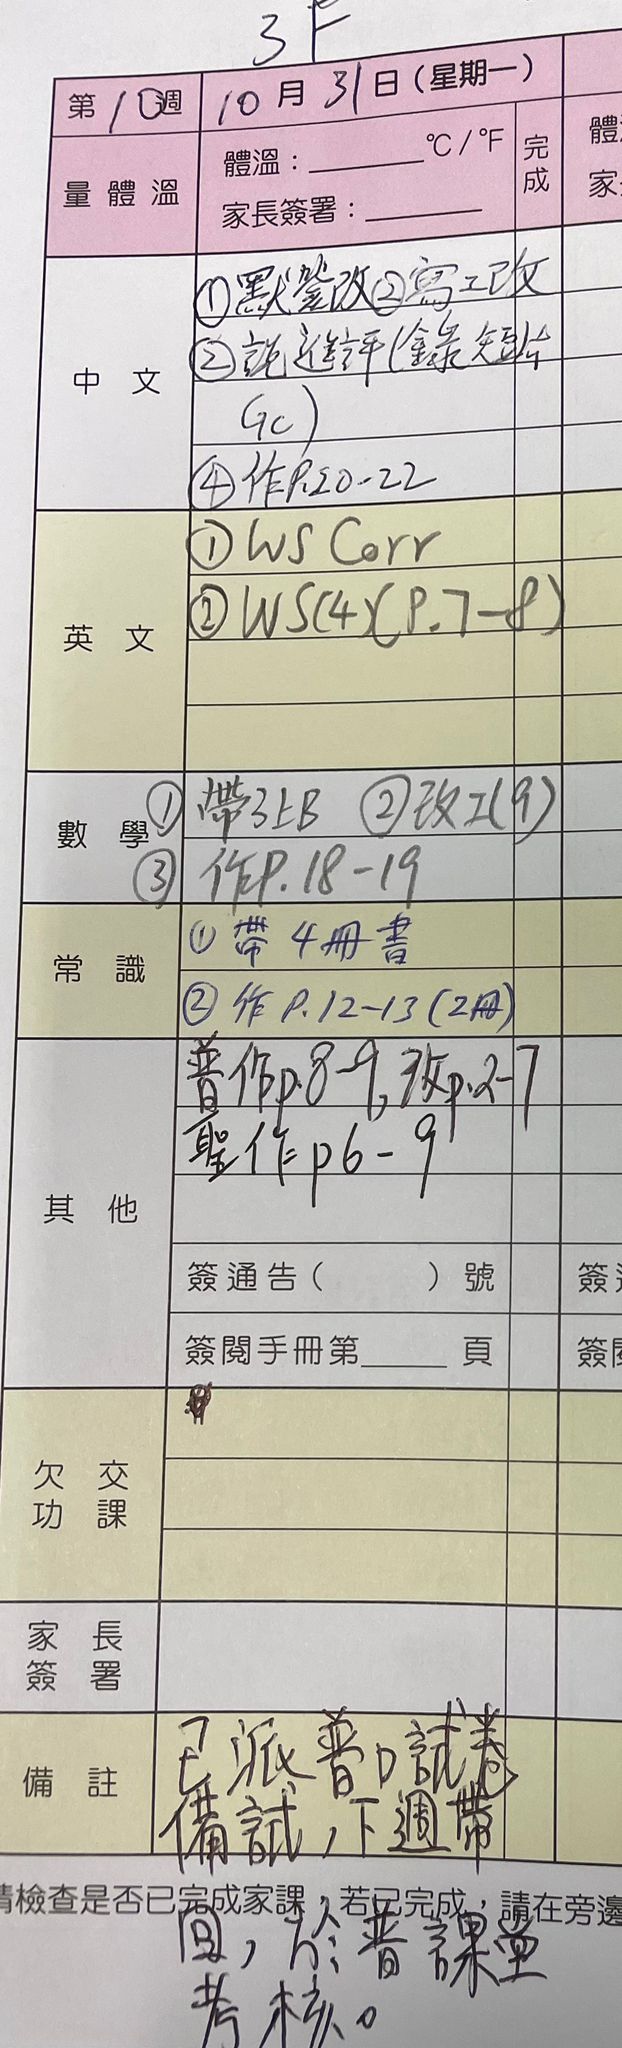 3F
第10週 10月31日(星期一)
量體溫 體溫：______°C/°F 完成
家長簽署：______
中文 ①默簽改②寫工改
②說進評(錄短片
GC)
④作P.20-22
英文 ① WS Corr
② WS(4)(P.7-8)
數學 ①帶3上B ②改工(9)
③作P.18-19
常識 ①帶4冊書
②作P.12-13(2冊)
其他 普作p.8-9,改p.2-7
聖作p6-9
簽通告( )號
簽閱手冊第______頁
欠交功課
家長簽署
備註 已派普口試卷
備試,下週帶
請檢查是否已完成家課，若已完成，請在旁邊
回,於普課堂
考核。